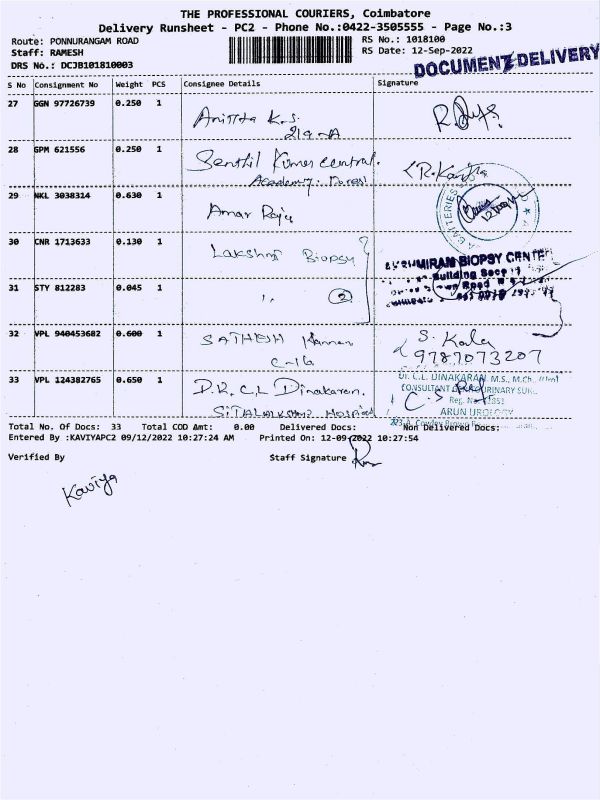 THE PROFESSIONAL COURIERS, Coimbatore
Delivery Runsheet - PC2 - Phone No.:0422-3505555 - Page No.:3
Route: PONNURANGAM ROAD
RS No.: 1018100
Staff: RAMESH
RS Date: 12-Sep-2022
DRS No.: DCJB101810003
DOCUMENT DELIVERY
S No Consignment No Weight PCS Consignee Details Signature
27 GGN 97726739 0.250 1
Anittta K.S.
219-A
28 GPM 621556 0.250 1
Senthil Kumer central.
Academy.
29 NKL 3038314 0.630 1
Amar Raja
BATTERIES
30 CNR 1713633 0.130 1
Lakshmi Biopsy
BIOPSY CENTRE
Building
Road
31 STY 812283 0.045 1
,, 2
32 VPL 940453682 0.600 1
SATHISH Kannan
S. Kala
C-16
9787073207
33 VPL 124382765 0.650 1
D.R. C.L Dinakaran.
SITALAKSHMI Hospital
Dr. C.L. DINAKARAN, M.S., M.Ch.,
CONSULTANT
ARUN UROLOGY
Total No. Of Docs: 33 Total COD Amt: 0.00 Delivered Docs: Non Delivered Docs:
Entered By :KAVIYAPC2 09/12/2022 10:27:24 AM Printed On: 12-09-2022 10:27:54
Verified By Staff Signature
Kaviya